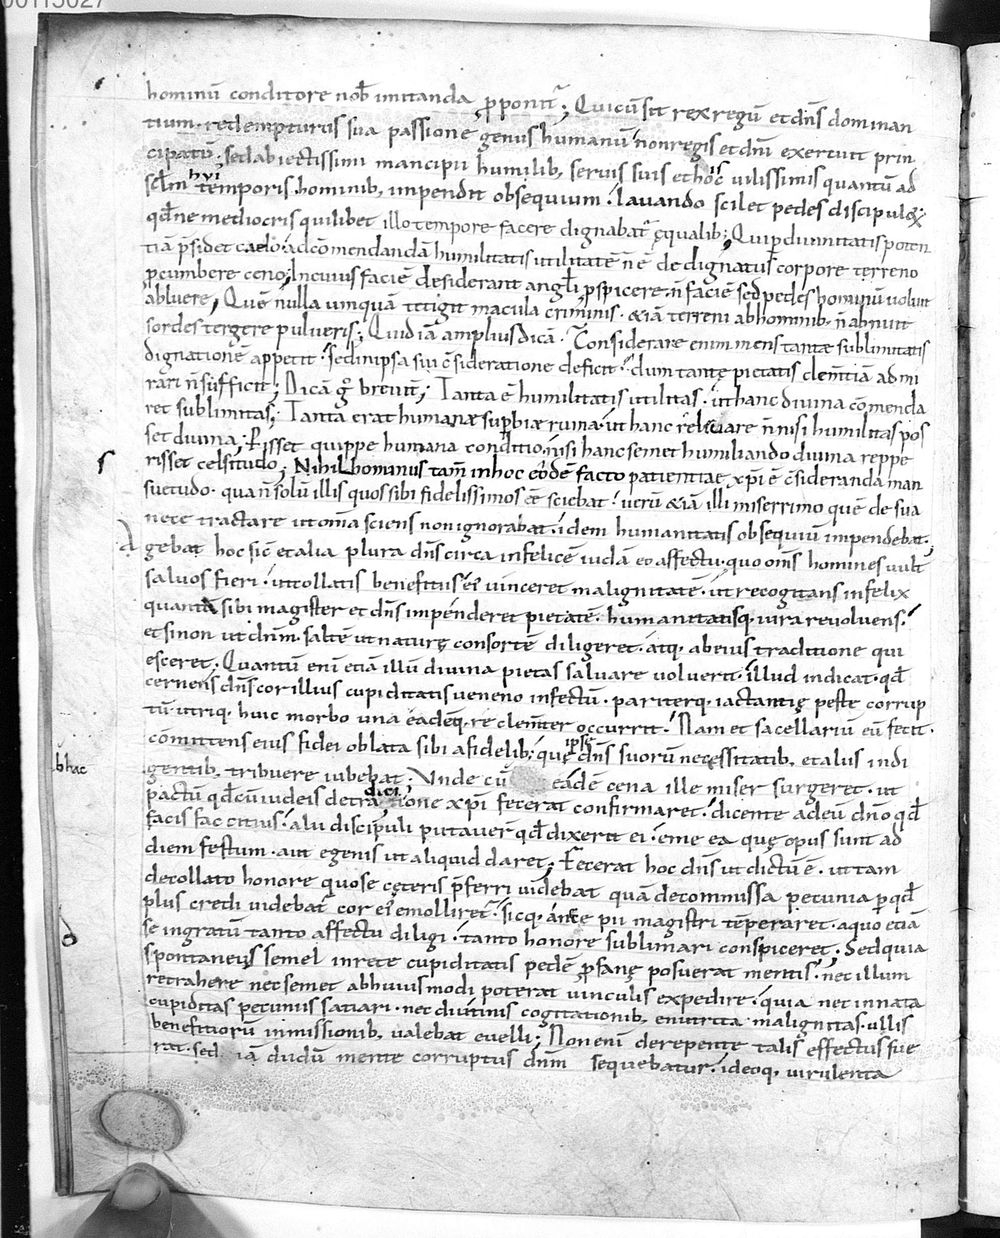 00115027
hominū conditore nob̄ imitanda ꝓponit᷑; Qui cū sit rex regū et dn̄s dominan
tium. redempturus sua passione genus humanū non regis et dn̄i exercuit prin
cipatū; sed abiectissimi mancipii humilib, seruis suis et hoc uilissimis quantū ad
sclm̄ hui temporis hominib, impendit obsequium. lauando scilet pedes discipuloꝝ;
qđ ne mediocris quilibet illo tempore facere dignabat᷑ ęqualib; Qui ꝑ diuinitatis poten
tiā p̄sidet caelo. ad cōmendandā humilitatis utilitatē n̄ ē dedignatus corpore terreno
ꝓcumbere ceno; In cuius faciē desiderant angl̄i ꝓspicere. n̄ faciē sed pedes hominū uoluit
abluere; Quē nulla umquā tetigit macula criminis. &iā terreni ab hominib, n̄ abnuit
sordes tergere pulueris; Quid iā amplius dicā. Considerare enim mens tantae sublimitatis
dignationē appetit. sed in ipsa sui c̄sideratione deficit. dum tantę pietatis clem̄tiā admi
rari n̄ sufficit; Dicā g̊ breuit̄; Tanta ē humilitatis utilitas. ut hanc diuina cōmenda
ret sublimitas; Tanta erat humanae suꝑbiae ruina. ut hanc releuare n̄ nisi humilitas pos
set diuina; Perisset quippe humana conditio. nisi hanc semet humiliando diuina reppe
risset celsitudo; Nihilhominus tam̄ in hoc eōdē facto patientiae xp̄i ē c̄sideranda man
suetudo. qua n̄ solū illis quos sibi fidelissimos eē sciebat. uerū &iā illi miserrimo quē de sua
nece tractare ut om̄a sciens non ignorabat. idem humanitatis obsequiū impendebat;
Agebat hoc sic̄ et alia plura dn̄s circa infelicē iudā eo affectu. quo om̄s homines uult
saluos fieri. ut collatis benefitiis ei' uinceret malignitatē. ut recogitans infelix
quantā sibi magister et dn̄s impenderet pietatē. humanitatisq, iura reuoluens.
et si non ut dn̄m. saltē ut naturę consortē diligeret. atq, ab eius traditione qui
esceret. Quantū eni etiā illū diuina pietas saluare uoluerit. illud indicat. qđ
cernens dn̄s cor illius cupiditatis ueneno infectū. pariterq, iactantię peste corrup
tū utriq, huic morbo una eademq, re clem̄ter occurrit. Nam et sacellariū eū fecit.
cōmittens eius fidei oblata sibi a fidelib; quę ipse dn̄s suorū necessitatib, et alus indi
gentib, tribuere iubebat; Unde cū eādē cena ille miser surgeret. ut
bhac
pactū qđ cū iudeis de traditione xp̄i fecerat confirmaret. dicente ad eū dn̄o qđ
facis fac citius. alii discipuli putauer̄ qđ dixerit ei. eme ea quę opus sunt ad
diem festum. aut egenis ut aliquid daret; Fecerat hoc dn̄s ut dictū ē. ut tam
decollato honore quo se ceteris p̄ferri uidebat quā de commissa pecunia ꝑ qđ
plus credi uidebat᷑ cor ei' emolliret᷑. sicq, ante pii magistri tēperaret. a quo etiā
se ingratū tanto affectu diligi. tanto honore sublimari conspiceret; Sed quia
spontaneus semel in rete cupiditatis pedē ꝓfanę posuerat mentis. nec illum
retrahere nec semet ab huiusmodi poterat uinculis expedire. quia nec innata
cupiditas pecuniis satiari. nec diutinis cogitationib, enutrita malignitas. ullis
benefitiorū inmissionib, ualebat euelli; Non eni derepente talis effectus fue
rat. sed iā dudū mente corruptus dn̄m sequebatur. ideoq, uirulenta